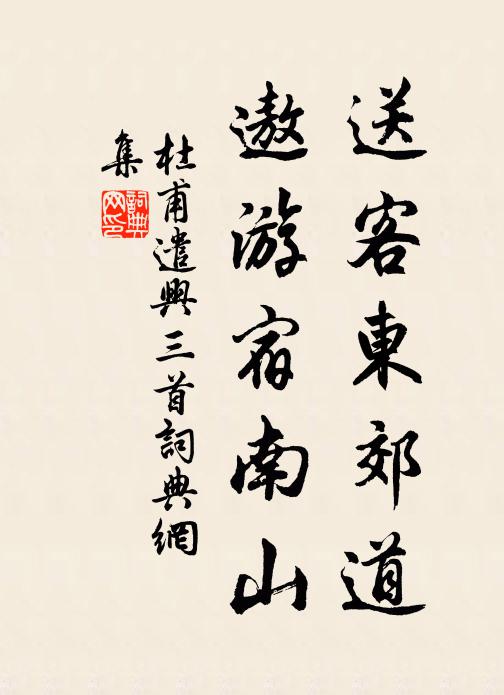 送客東郊道
遨游宿南山
杜甫遣興三首詞典網
集
詞典
网印